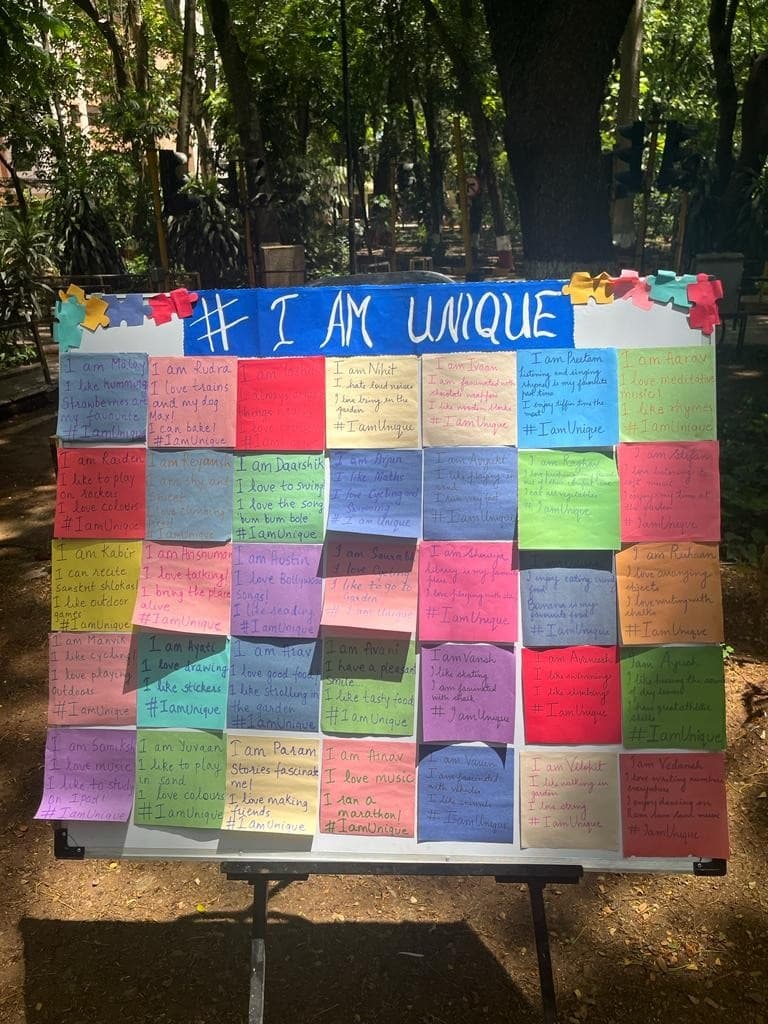 # I AM UNIQUE
I am Malay
I like humming
Strawberries are
my favourite
# I am Unique
I am Rudra
I love trains
and my dog
Max!
I can bake!
# IamUnique
I am
# IamUnique
I am Nihit
I hate loud noises
I love being in the
garden
# IamUnique
I am Ivaan
I am fascinated with
I like
# IamUnique
I am Preetam
listening and singing
rhymes is my favourite
past time
I enjoy tiffin time the
most!
# IamUnique
I am Aarav
I love meditative
music!
I like rhymes
# IamUnique
I am Raiden
I like to play
on rockers
I love colours
# IamUnique
I am Reyansh
I am shy and
sweet
I love climbing
# IamUnique
I am Daarshik
I love to swing
I love the song
"bum bum bole"
# IamUnique
I am Arjun
I like Maths
I love Cycling and
Swimming
# I am Unique
I am
I like playing in
and
I
# IamUnique
I am Raghav
I love
# IamUnique
I am
I love listening to
soft music
I enjoy my time at the
garden
# IamUnique
I am Kabir
I can recite
sanskrit shlokas
I like outdoor
games
# IamUnique
I am Anshuman
I love talking!
I bring the place
alive
# IamUnique
I am Austin
I love Bollywood
Songs!
I like reading
# IamUnique
I am
I love
I like to go to
Garden
# I am Unique
I am Shreya
library is my favourite
place
I love playing with
# IamUnique
I enjoy eating
Banana is my
favourite food
# IamUnique
I am Ruhaan
I love arranging
objects
I love writing with
chalks
# IamUnique
I am Manvik
I like cycling!
I love playing
Outdoors
# IamUnique
I am Ayati
I love drawing
I like stickers
# IamUnique
I am Arav
I love good food
I like strolling in
the garden
# IamUnique
I am Avani
I have a pleasant
Smile
I like tasty food
# IamUnique
I am Vansh
I like skating
I am fascinated
with chalk
# IamUnique
I am Avaneesh
I like swimming
I like climbing!
# IamUnique
I am Ayush
I like
I have great athletic
skills
# IamUnique
I am Samiksh
I love music
I like to study
on Ipad!
# IamUnique
I am Yuvaan
I like to play
in sand
I love colours
# IamUnique
I am Param
Stories fascinate
me!
I love making
friends
# IamUnique
I am Arnav
I love music
I ran a
marathon!
# IamUnique
I am Varun
I am fascinated
with vehicles
I like
# IamUnique
I am
I like walking in
garden
I love
# IamUnique
I am Vedansh
I love writing numbers
everywhere
I enjoy dancing on
music
# IamUnique